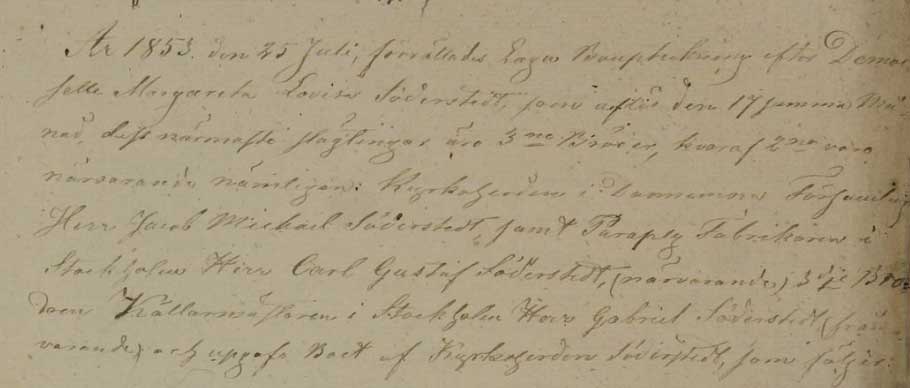 År 1853. den 25 Juli, förrättades Laga Bouptekning efter Demoi
selle Margareta Lovisa Söderstedt, som afled den 17 samma Må-
nad, dess närmaste slägtingar äro 3ne Bröder, hvaraf 2ne voro
närvarande nämligen: Kyrkoherden i Dannemora Församling
Herr Jacob Michael Söderstedt, samt Paraply Fabrikören i
Stockholm Herr Carl Gustaf Söderstedt, (närvarande) 3dje Bro-
dern Källarmästaren i Stockholm Herr Gabriel Söderstedt (från
varande) och uppgafs Boet af Kyrkoherden Söderstedt, som följer: